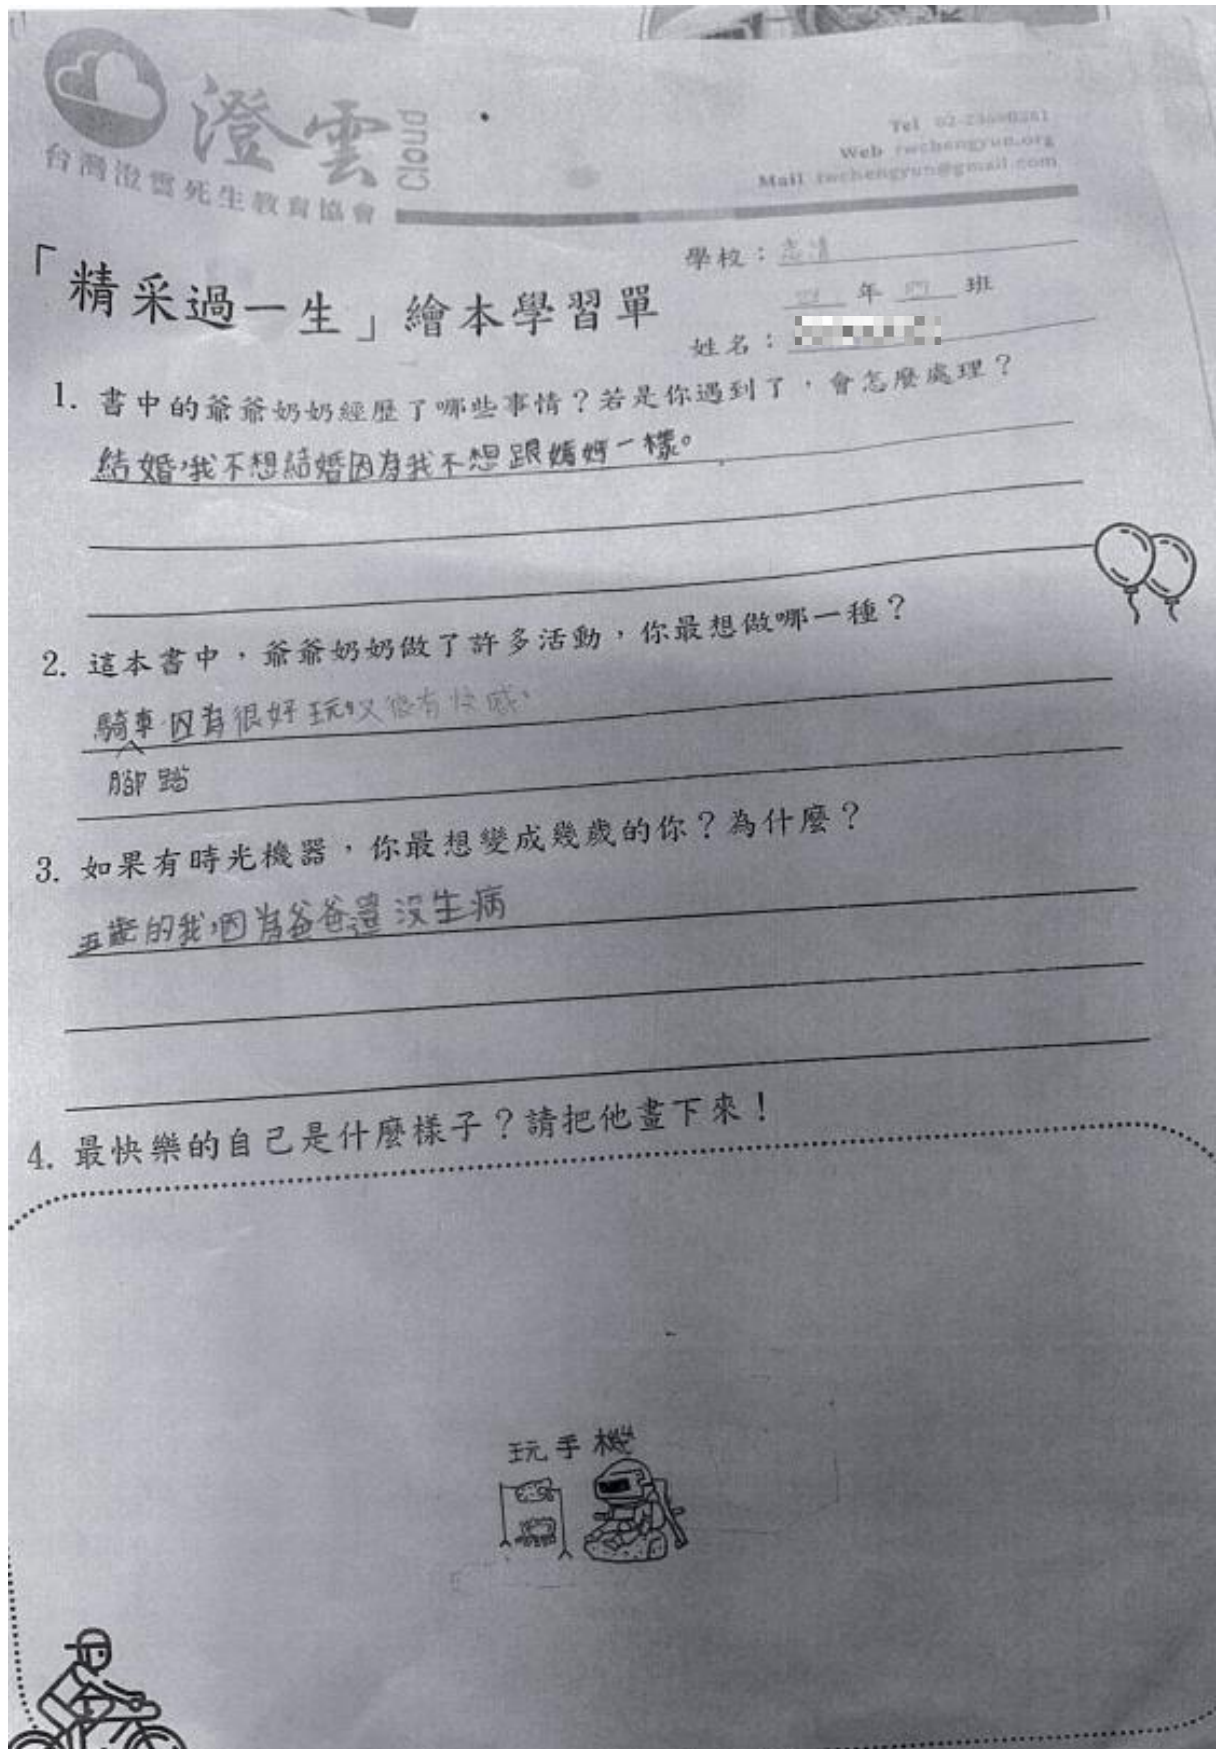 澄雲 Cloud
台灣澄雲死生教育協會
Tel 02-
Web twchengyun.org
Mail twchengyun@gmail.com
「精采過一生」繪本學習單
學校：志清
四 年 四 班
姓名：
1. 書中的爺爺奶奶經歷了哪些事情？若是你遇到了，會怎麼處理？
結婚，我不想結婚因為我不想跟媽媽一樣。
2. 這本書中，爺爺奶奶做了許多活動，你最想做哪一種？
騎車，因為很好玩，又很有快感。
腳踏
3. 如果有時光機器，你最想變成幾歲的你？為什麼？
五歲的我，因為爸爸還沒生病
4. 最快樂的自己是什麼樣子？請把他畫下來！
玩手機